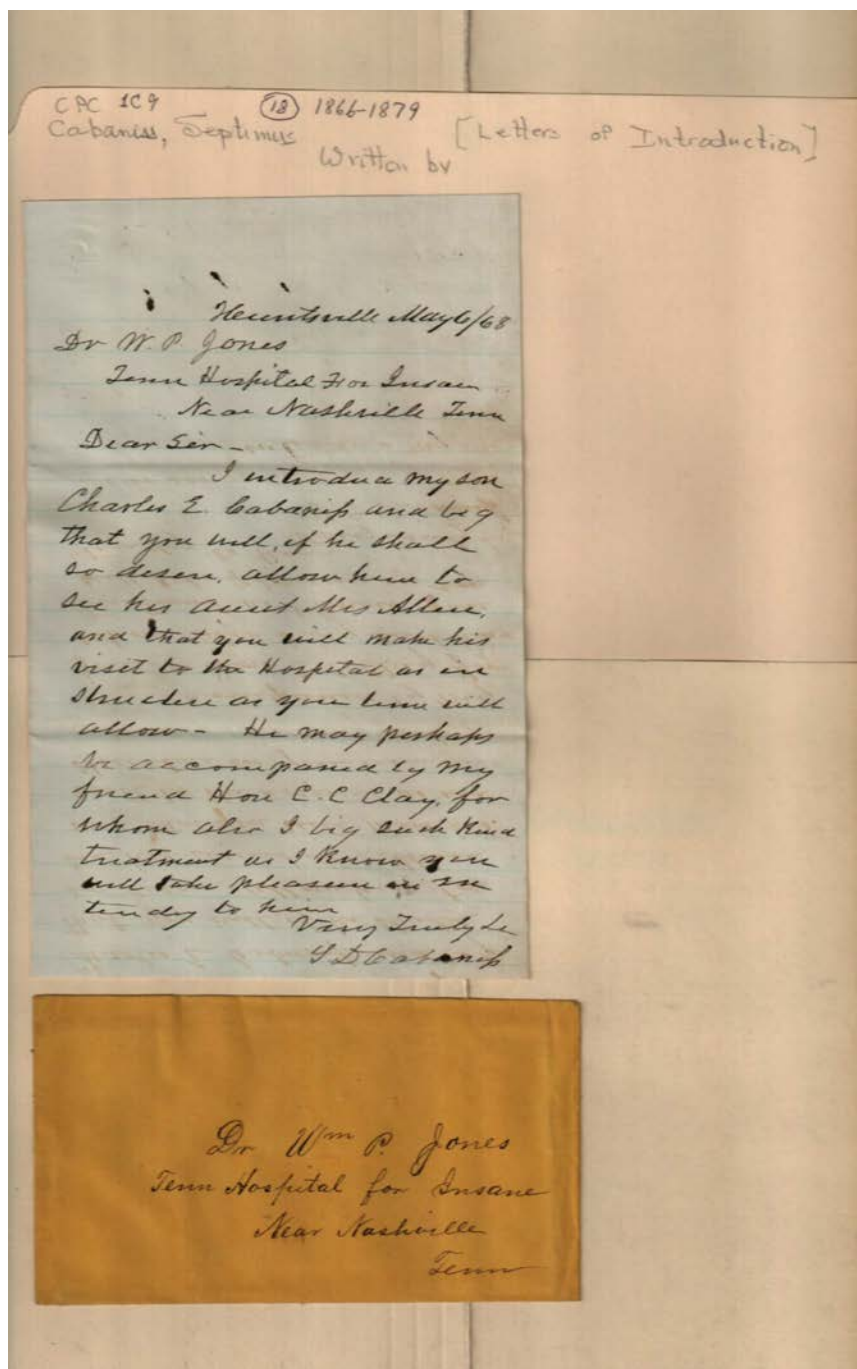 CPC 1C9 (18) 1866-1879
Cabaniss, Septimus [Letters of Introduction]
Written by
Huntsville May 6/68
Dr W. P. Jones
Tenn Hospital For Insane
Near Nashville Tenn
Dear Sir -
I introduce my son
Charles E. Cabaniss and beg
that you will, if he shall
so desire, allow him to
see his aunt Mrs Allen,
and that you will make his
visit to the Hospital as in
structive as your time will
allow - He may perhaps
be accompanied by my
friend Hon C. C Clay, for
whom also I beg such kind
treatment as I know you
will take pleasure in ex
tendg to him
Very Truly
S D Cabaniss
Dr Wm P. Jones
Tenn Hospital for Insane
Near Nashville
Tenn